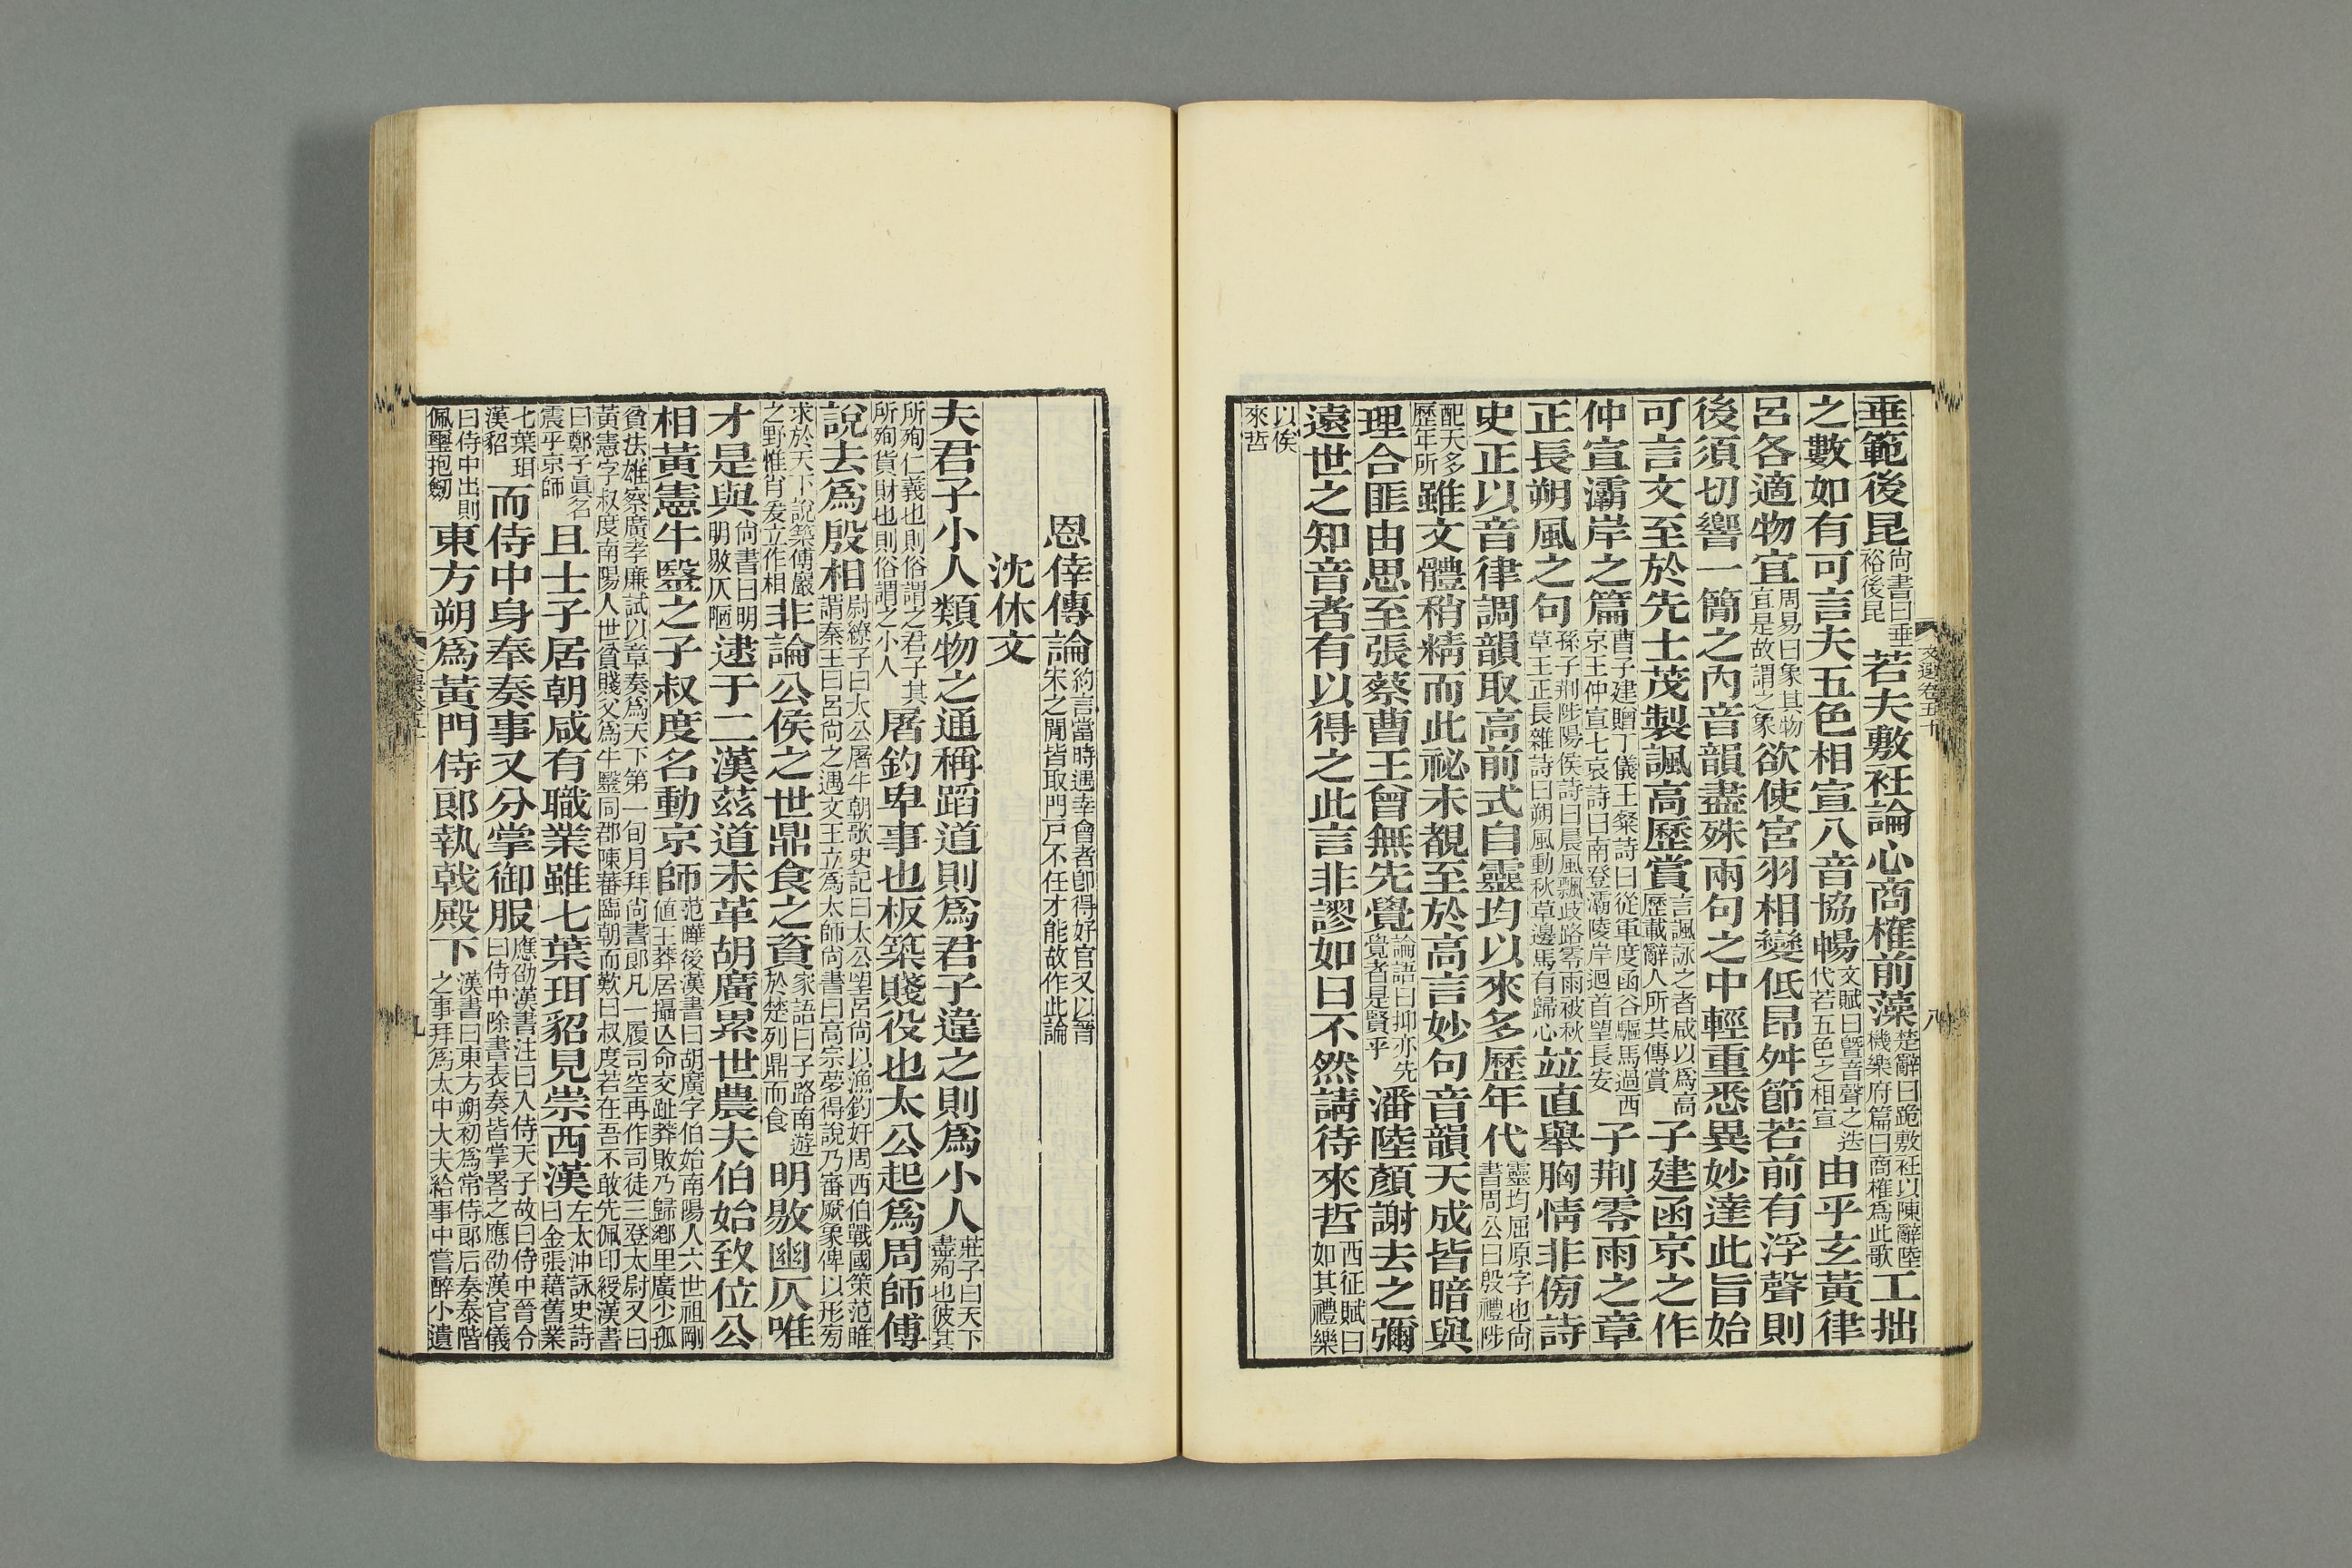 垂範後昆尚書曰垂裕後昆若夫敷衽論心商榷前藻楚辭曰跪敷衽以陳辭陸機樂府篇曰商榷爲此歌工拙
之數如有可言夫五色相宣八音協暢文賦曰曁音聲之迭代若五色之相宣由乎玄黃律
呂各適物宜周易曰象其物宜是故謂之象欲使宮羽相變低昂舛節若前有浮聲則
後須切響一簡之內音韻盡殊兩句之中輕重悉異妙達此旨始
可言文至於先士茂製諷高歷賞言諷詠之者咸以爲高歷載辭人所共傳賞子建函京之作
仲宣灞岸之篇曹子建贈丁儀王粲詩曰從軍度函谷驅馬過西京王仲宣七哀詩曰南登灞陵岸迴首望長安子荆零雨之章
正長朔風之句孫子荆陟陽侯詩曰晨風飄歧路零雨被秋草王正長雜詩曰朔風動秋草邊馬有歸心竝直舉胸情非傍詩
史正以音律調韻取高前式自靈均以來多歷年代靈均屈原字也尙書周公曰殷禮陟
配天多歷年所雖文體稍精而此祕未覩至於高言妙句音韻天成皆暗與
理合匪由思至張蔡曹王曾無先覺論語曰抑亦先覺者是賢乎潘陸顏謝去之彌
遠世之知音者有以得之此言非謬如曰不然請待來哲西征賦曰如其禮樂
以俟來哲
文選卷五十
八
恩倖傳論約言當時遇幸會者卽得好官又以晉宋之閒皆取門戶不任才能故作此論
沈休文
夫君子小人類物之通稱蹈道則爲君子違之則爲小人莊子曰天下盡殉也彼其
所殉仁義也則俗謂之君子其所殉貨財也則俗謂之小人屠釣卑事也板築賤役也太公起爲周師傅
說去爲殷相尉繚子曰太公屠牛朝歌史記曰太公望呂尙以漁釣奸周西伯戰國策范雎謂秦王曰呂尙之遇文王立爲太師尙書曰高宗夢得說乃審厥象俾以形旁
求於天下說築傅巖之野惟肖爰立作相非論公侯之世鼎食之資家語曰子路南遊於楚列鼎而食明敭幽仄唯
才是與尙書曰明明敭仄陋逮于二漢茲道未革胡廣累世農夫伯始致位公
相黃憲牛毉之子叔度名動京師范曄後漢書曰胡廣字伯始南陽人六世祖剛値王莽居攝亾命交趾莽敗乃歸鄕里廣少孤
貧法雄察廣孝廉試以章奏爲天下第一旬月拜尙書郞凡一履司空再作司徒三登太尉又曰黃憲字叔度南陽人世貧賤父爲牛毉同郡陳蕃臨朝而歎曰叔度若在吾不敢先佩印綬漢書
曰鄭子眞名震乎京師且士子居朝咸有職業雖七葉珥貂見崇西漢左太沖詠史詩曰金張藉舊業
七葉珥漢貂而侍中身奉奏事又分掌御服應劭漢書注曰入侍天子故曰侍中晉令曰侍中除書表奏皆掌署之應劭漢官儀
曰侍中出則佩璽抱劒東方朔爲黃門侍郞執戟殿下漢書曰東方朔初爲常侍郞后奏泰階之事拜爲太中大夫給事中嘗醉小遺
九